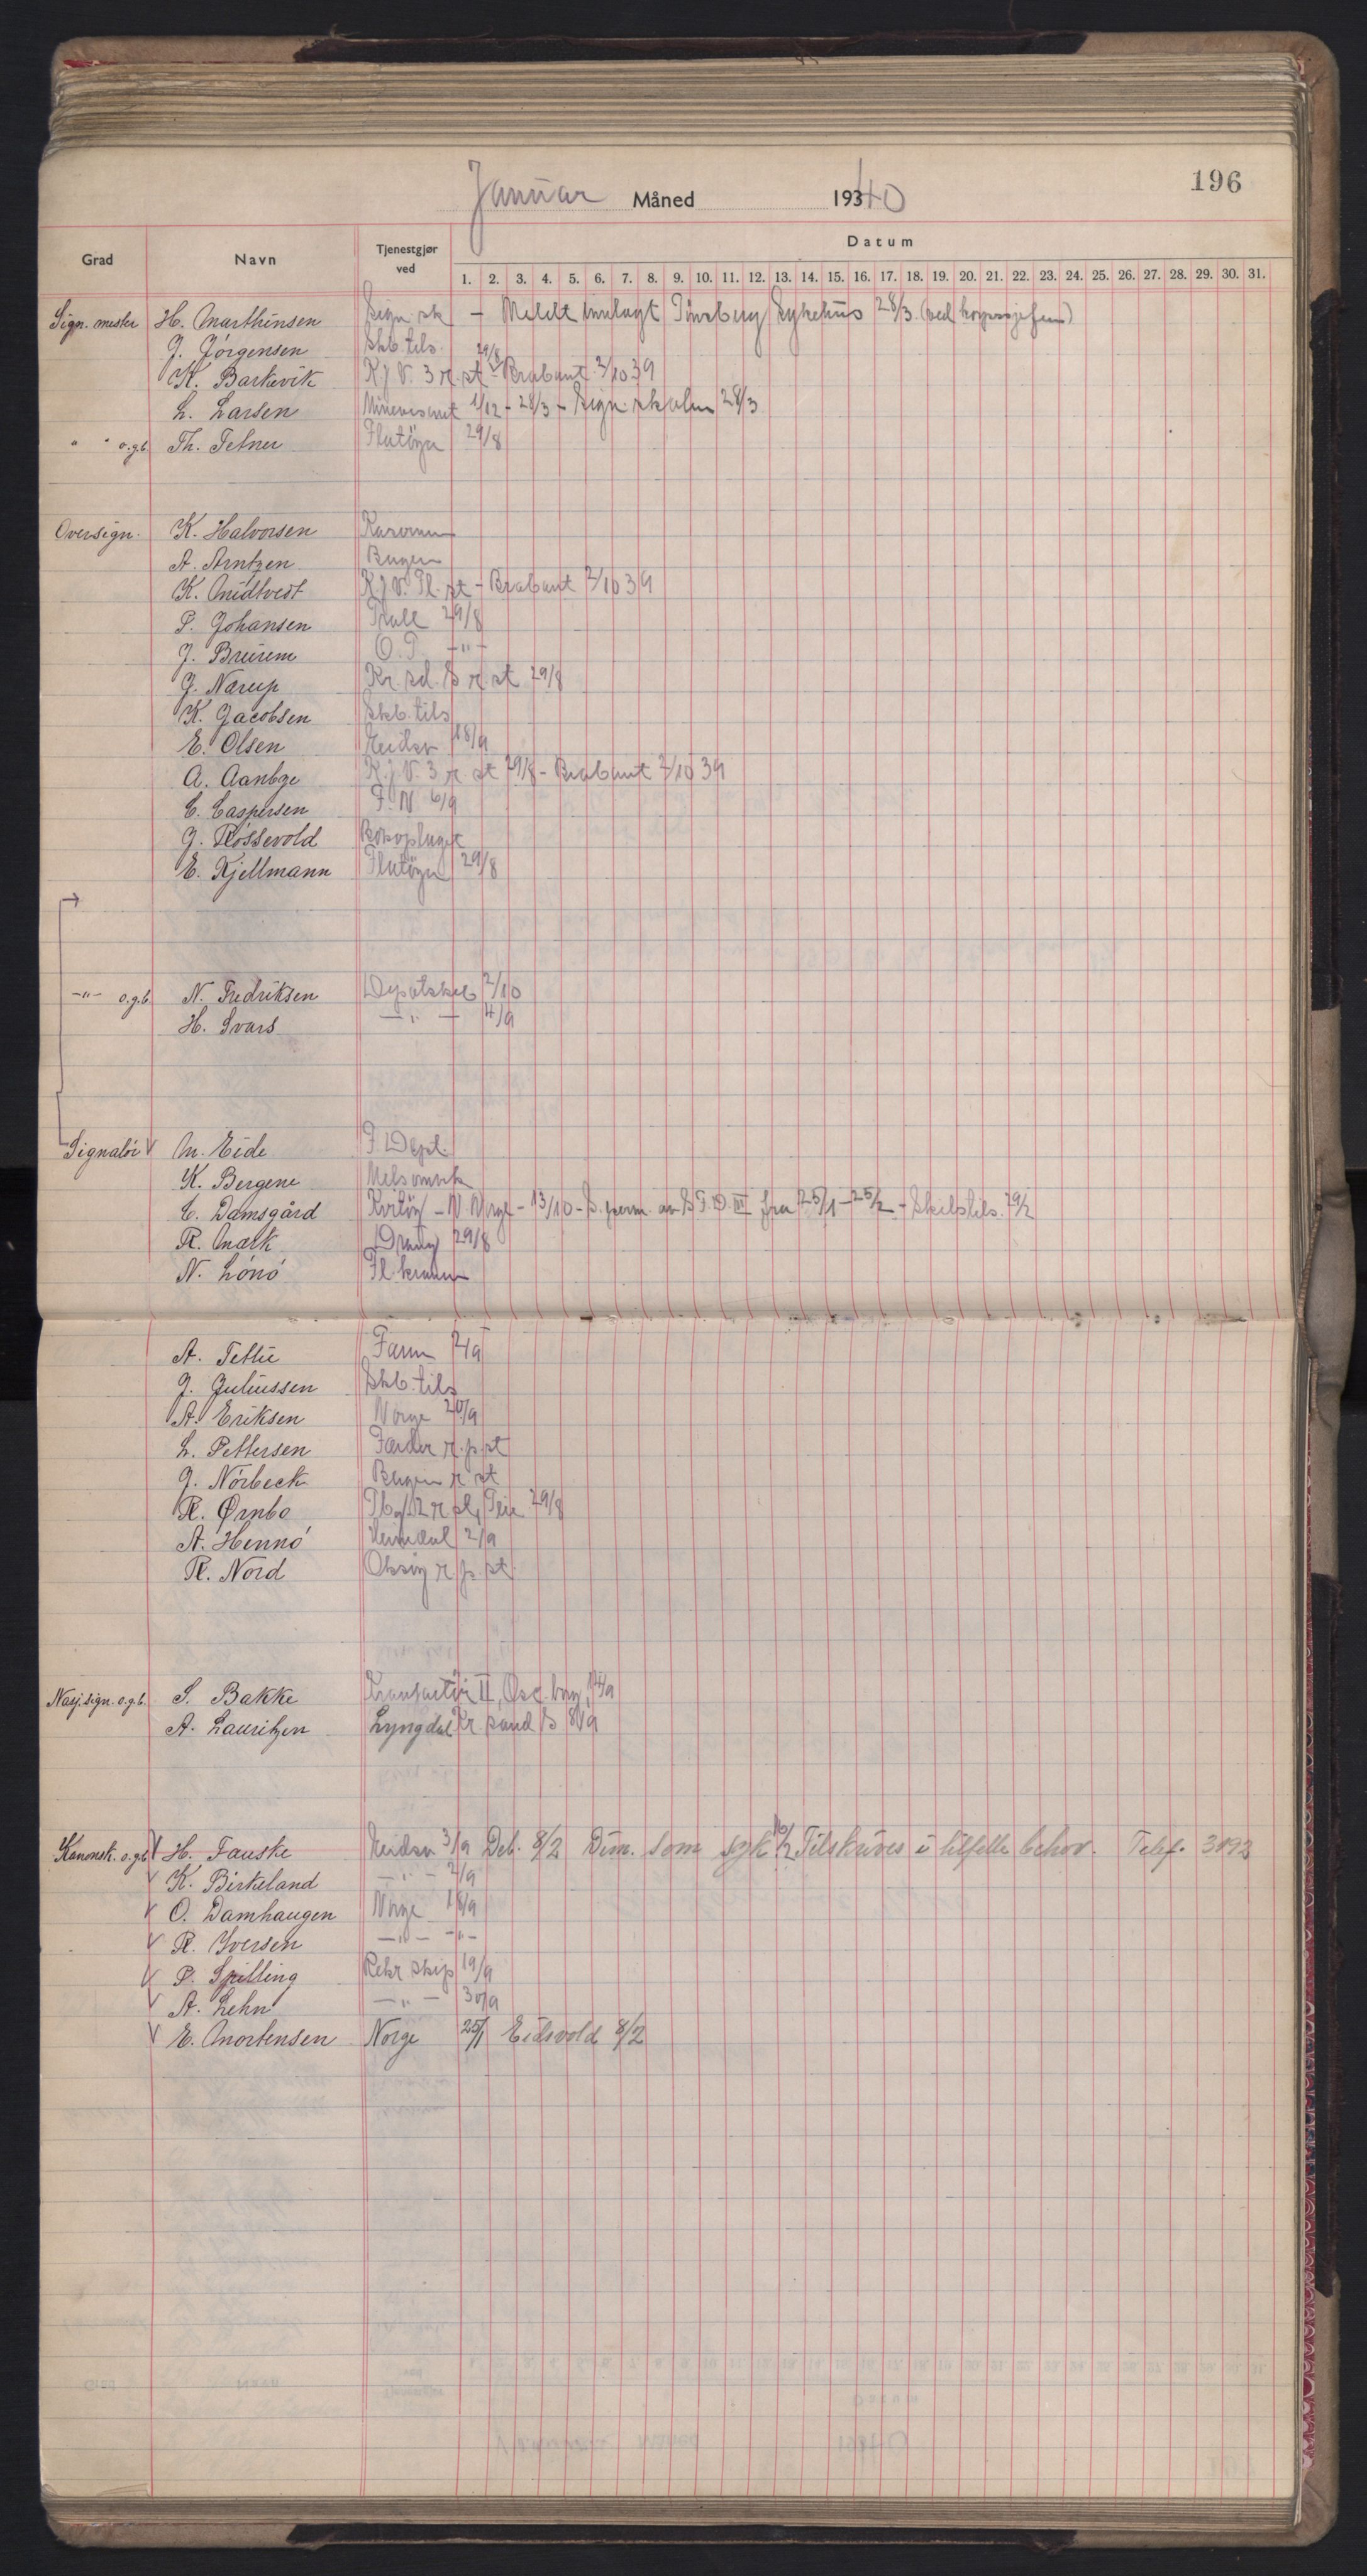 196
Januar Måned 1940
Grad Navn Tjenestgjør ved Datum
1. 2. 3. 4. 5. 6. 7. 8. 9. 10. 11. 12. 13. 14. 15. 16. 17. 18. 19. 20. 21. 22. 23. 24. 25. 26. 27. 28. 29. 30. 31.
Sign. mester H. Marthinsen Sign. sk - Meldt innlagt Tönsberg Sykehus 28/3 (ved korpssjefen)
J. Jørgensen Skb. tils.
K. Barkevik K.J.V. 3 r. st 29/8 - Brabant 2/10 39
L. Larsen Minevesenet 1/12 - 28/3 - Sign. skolen 28/3
" " o.g.b. Th. Tefner Flatöya 29/8
Oversign. K. Halvorsen
A. Arntzen Bugen
K. Midtvest K.J.V. Tl. st - Brabant 2/10 39
P. Johansen 29/8
J. Brurem O. -"-
G. Nærup Kr. sd. S r st 29/8
K. Jacobsen Skb. tils
E. Olsen Eidsv 18/9
A. Aanbge K.J.V. 3 r. st 29/8 - Brabant 2/10 39
C. Caspersen F. N 6/9
G. Røssevold
E. Kjellmann Flatöya 29/8
-"- o.g.b. N. Fredriksen Depotskib 2/10
H. Svars -"- 4/9
Signalör V M. Eide F. Dept.
K. Bergene Melsomvik
C. Damsgård - N. Norge - 13/10 - S. perm. av S.F.D. III fra 25/1 - 25/2 - Skibstils. 29/2
R. Mærk Draug 29/8
N. Lönö
A. Tettie Farm 2/9
J. Juliussen Skb. tils
A. Eriksen Norge 20/9
L. Pettersen Færder r. p. st
J. Nörbeck Bugen r st
R. Ørnbo 29/8
A. Hennö Heimdal 2/9
R. Nord Oksöy r. p. st.
Nasj. sign. o.g.b. S. Bakke II, Osc. borg, 14/9
A. Lauritzen Lyngdal Kr. sand S 8/9
Kanonsk. o.g.b. V H. Fauske Eidsv 3/9 Deb. 8/2 Dim. som syk 16/2 Tilskrives i tilfelle behov. Telef. 3892
V K. Birkeland -"- 2/9
V O. Damhaugen Norge 18/9
V R. Iversen -"- -"-
V P. Spilling Rekr. skip 19/9
V A. Lehn -"- 30/9
V E. Mortensen Norge 25/1 Eidsvold 8/2